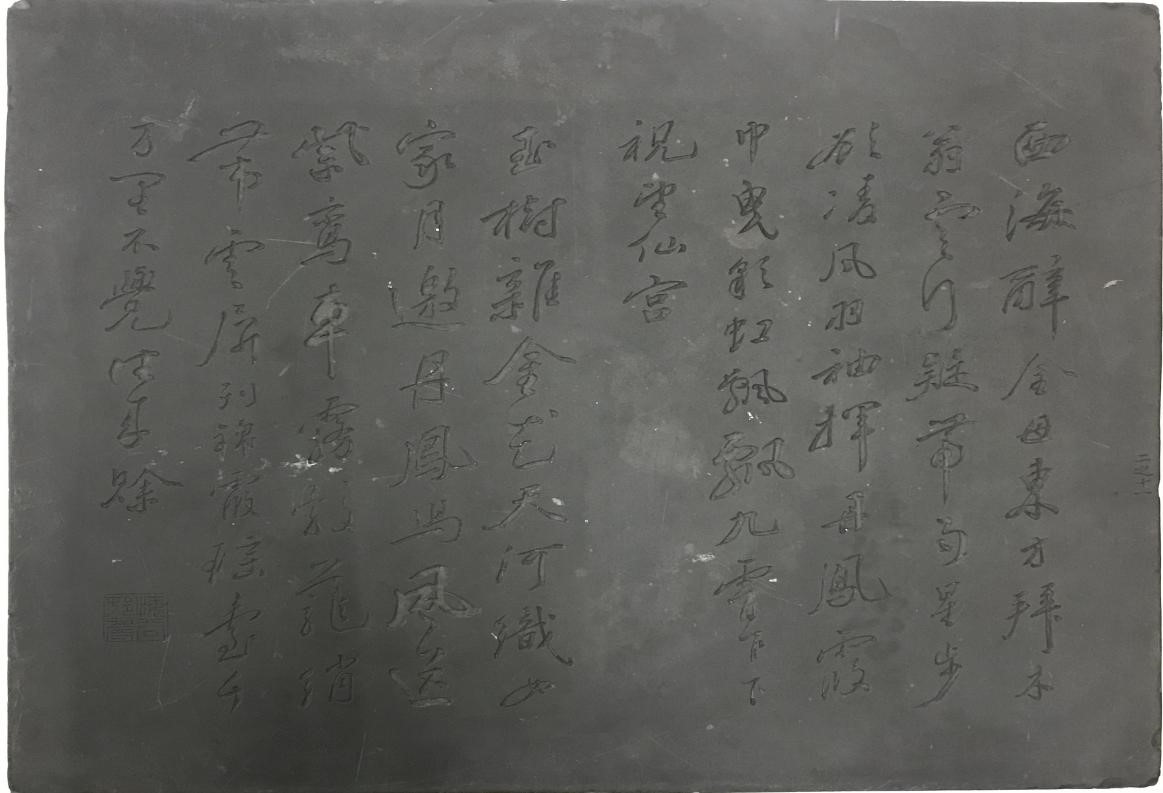 西海辭金母東方拜木
翁雲行疑帶雨星步
欲凌風羽袖揮丹鳳霞
巾曳彩虹飄飄九霄外下
視望仙宮
玉樹雜金花天河織女
家月邀丹鳳舄風送
紫鸞車霧縠籠綃
帶雲屏列錦霞瑤臺千
万里不覺往來賒